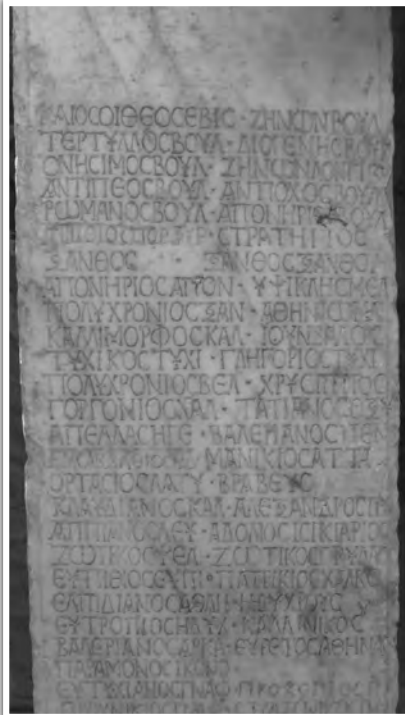 ΚΑΙΟCΟΙΘΕΟCΕΒΙC · ΖΗΝωΝΒΟΥΛ
ΤΕΡΤΥΛΛΟCΒΟΥΛ · ΔΙΟΓΕΝΗCΒΟΥΛ
ΟΝΗCΙΜΟCΒΟΥΛ · ΖΗΝωΝΛΟΝΓΙ
ΑΝΤΙΠΕΟCΒΟΥΛ · ΑΝΤΙΟΧΟCΒΟΥΛ
ΡωΜΑΝΟCΒΟΥΛ · ΑΠΟΝΗΡΙΟCΒΟΥΛ
CΤΡΑΤΗΓΙΟC
ΞΑΝΘΟC · ΞΑΝΘΟCΞΑΝΘΟΥ
ΑΠΟΝΗΡΙΟCΑΠΟΝ · ΥΨΙΚΛΗCΜΕΛ
ΠΟΛΥΧΡΟΝΙΟCΞΑΝ · ΑΘΗΝΙωΝ
ΚΑΛΛΙΜΟΡΦΟCΚΑΛ · ΙΟΥΝΒΑΛΟC
ΤΥΧΙΚΟCΤΥΧΙ · ΓΛΗΓΟΡΙΟCΤΥΧΙ
ΠΟΛΥΧΡΟΝΙΟCΒΕΛ · ΧΡΥCΙΠΠΟC
ΓΟΡΓΟΝΙΟCΧΑΛ · ΤΑΤΙΑΝΟCΟΞΥ
ΑΠΕΛΛΑCΗΓΕ · ΒΑΛΕΡΙΑΝΟCΠΕΝ
ΜΑΝΙΚΙΟCΑΤΤΑ
ΟΡΤΑCΙΟCΛΑΤΥ · ΒΡΑΒΕΥC
ΚΛΑΥΔΙΑΝΟCΚΑΛ · ΑΛΕΞΑΝΔΡΟCΠΥ
ΑΠΠΙΑΝΟCΛΕΥ · ΑΔΟΛΙΟCΙCΙΚΙΑΡΙΟC
ΖωΤΙΚΟCΨΕΛ · ΖωΤΙΚΟCΓΡΥΛΛ
ΕΥΠΙΘΙΟCΕΥΠΙ · ΠΑΤΡΙΚΙΟCΧΑΛΚΟ
ΕΛΠΙΔΙΑΝΟCΑΘΛΗ · ΗΔΥΧΡΟΥC
ΕΥΤΡΟΠΙΟCΗΔΥΧ · ΚΑΛΛΙΝΙΚΟC
ΒΑΛΕΡΙΑΝΟCΑΡΚΑ · ΕΥΡΕΤΟCΑΘΗΝΑΓ
ΠΑΡΑΜΟΝΟCΙΚΟΝΟ
ΕΥΤΥΧΙΑΝΟCΓΝΑΦ · ΠΡΟΚΟΠΙΟC